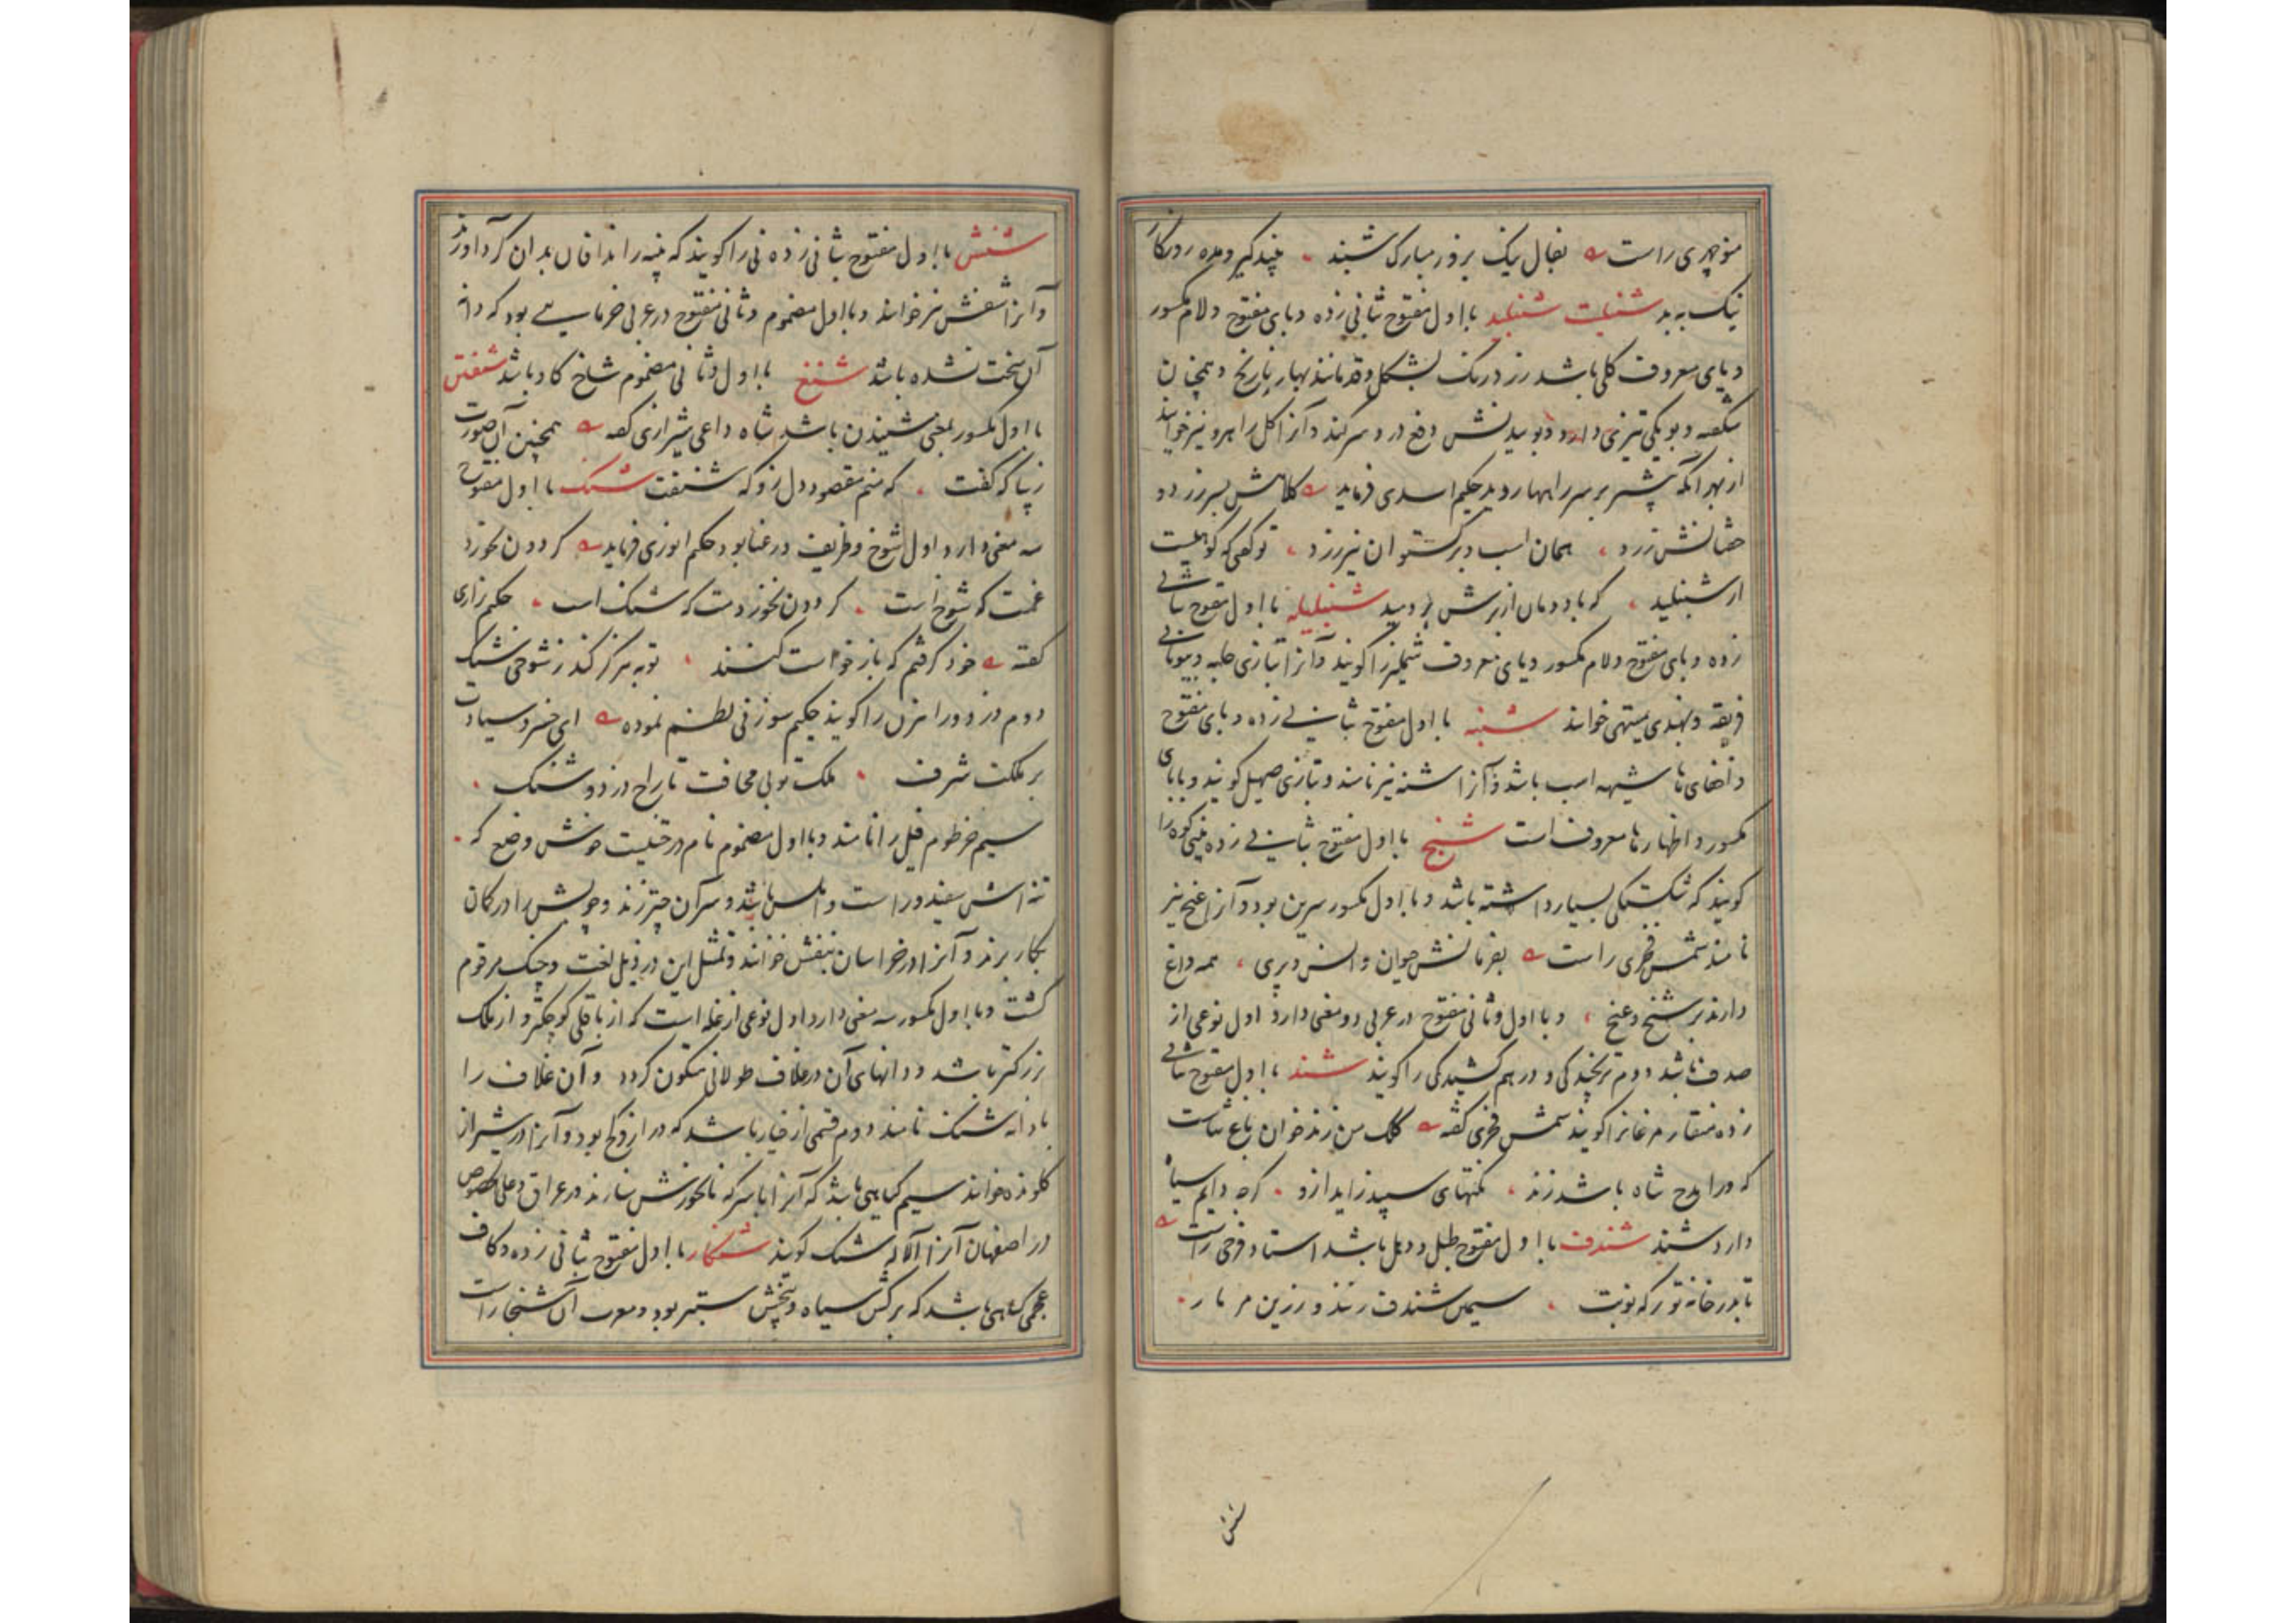 منوچهری راست بفال نیک بروز مبارک شنبد نبیذ گیر و مده روزگار
نیک به بد شنبلت شنبلید با اول مفتوح بثانی زده و بای مفتوح و لام مکسور
و یای معروف گلی باشد زرد رنگ بشکل و قد مانند بهار نارنج و همچنان
شگفته و بویکی تیزی دارد و بوییدنش دفع درد سر کند و آنرا گل راهرو نیز خوانند
از بهر آنکه بیشتر بر سر راهها روید حکیم اسدی فرماید کلاهش بسر زرد و
خفتانش زرد همان اسب و برگستوان نیز زرد تو گفتی که کوهیست
از شنبلید که باد دمان از برش بر دمید شنبلیله با اول مفتوح بثانی
زده و بای مفتوح و لام مکسور و یای معروف شملیز را گویند و آنرا بتازی حلبه و بیونانی
فریقه و بهندی میتهی خوانند شنبه با اول مفتوح بثانی زده و بای مفتوح
و اخفای ها شیهه اسب باشد و آنرا شنه نیز نامند و بتازی صهیل گویند و با بای
مکسور و اظهار ها معروف است شنج با اول مفتوح بثانی زده بینی کوه را
گویند که شکستگی بسیار داشته باشد و با اول مکسور سرین بود و آنرا غنج نیز
نامند شمس فخری راست بفرمانش حیوان و انس و پری همه داغ
دارند بر شنج و غنج و با اول و ثانی مفتوح در عربی دو معنی دارد اول نوعی از
صدف باشد دوم ترنجیدگی و در هم کشیدگی را گویند شند با اول مفتوح بثانی
زده منقار مرغانرا گویند شمس فخری گفته کلک من زند خوان باغ ثناست
که ورا مدح شاه باشد زند نکتهای سپید زاید ازو گرچه دایم سیاه
دارد شند شندف با اول مفتوح طبل و دهل باشد استاد فرخی راست
تا بدر خانه تو بر گه نوبت سیمین شندف زنند و زرین مزمار
شنش
شنش با اول مفتوح بثانی زده نی را گویند که پنبه را ندافان بدان گرد آورند
و آنرا شفش نیز خوانند و با اول مضموم و ثانی مفتوح در عربی خرمایی بود که دانه
آن سخت نشده باشد شنغ با اول و ثانی مضموم شاخ گاو باشد شنفتن
با اول مکسور بمعنی شنیدن باشد شاه داعی شیرازی گفته همچنین آن صورت
زیبا که گفت که منم مقصود دل زو که شنفت شنگ با اول مفتوح
سه معنی دارد اول شوخ و ظریف و رعنا بود حکیم انوری فرماید گردون نخورد
غمت که شوخ است گردون نخورد دمت که شنگ است حکیم نزاری
گفته خود گرفتم که بازخواست کنند توبه هرگز کند ز شوخی شنگ
دوم دزد و راهزن را گویند حکیم سوزنی نظم نموده ای خسرو سیادت
بر مملکت شرف ملکت تو بی مخافت تاراج دزد و شنگ
سیم خرطوم فیل را نامند و با اول مضموم نام درختیست خوش وضع که
تنه اش سفید و راست و املس باشد و سر آن چتر زند و چوبش را در کمان
بکار برند و آنرا در خراسان بنفش خوانند و تمثیل این در ذیل لغت و چنگ مرقوم
گشت و با اول مکسور سه معنی دارد اول نوعی از غله است که از باقلی کوچکتر و از ملک
بزرگتر باشد و دانهای آن در غلاف طولانی متکون گردد و آن غلاف را
با دانه شنگ نامند دوم قسمی از خیار باشد که دراز و کج بود و آنرا در شیراز
کلونده خوانند سیم گیاهی باشد که آنرا با سرکه نانخورش سازند در عراق و علی الخصوص
در اصفهان آنرا آلاله شنگ گویند شنگار با اول مفتوح بثانی زده و کاف
عجمی گیاهی باشد که برگش سیاه و بیخش ستبر بود و معرب آن شنجار است